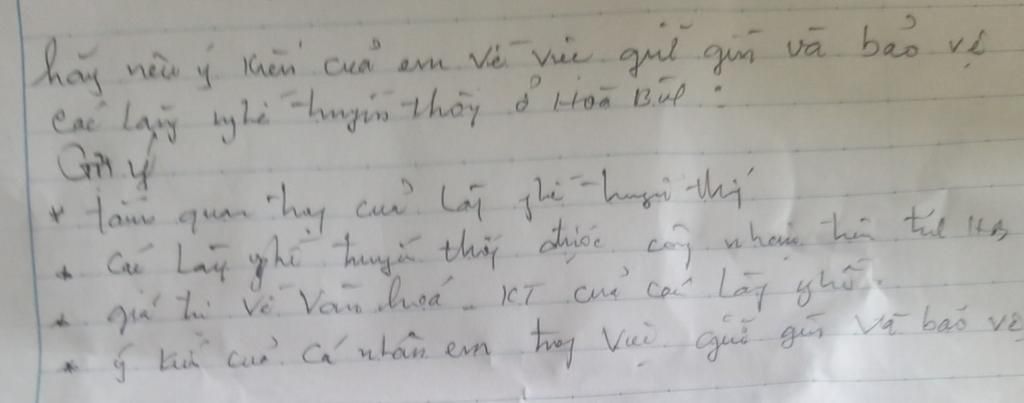 hãy nêu ý kiến của em về việc giữ gìn và bảo vệ
các làng nghề truyền thống ở Hoà Bình :
Gợi ý
* tầm quan trọng của làng nghề truyền thống
* các làng nghề truyền thống được công nhận trên tỉnh HB
* giá trị về văn hoá - KT của các làng nghề.
* ý kiến của cá nhân em trong việc giữ gìn và bảo vệ